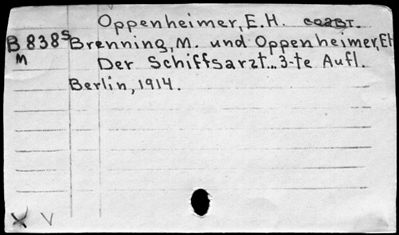 Oppenheimer, E.H. соавт.
B 838 S Brenning, M. und Oppenheimer, EH
M Der Schiffsarzt... 3-te Aufl.
Berlin, 1914.
X V